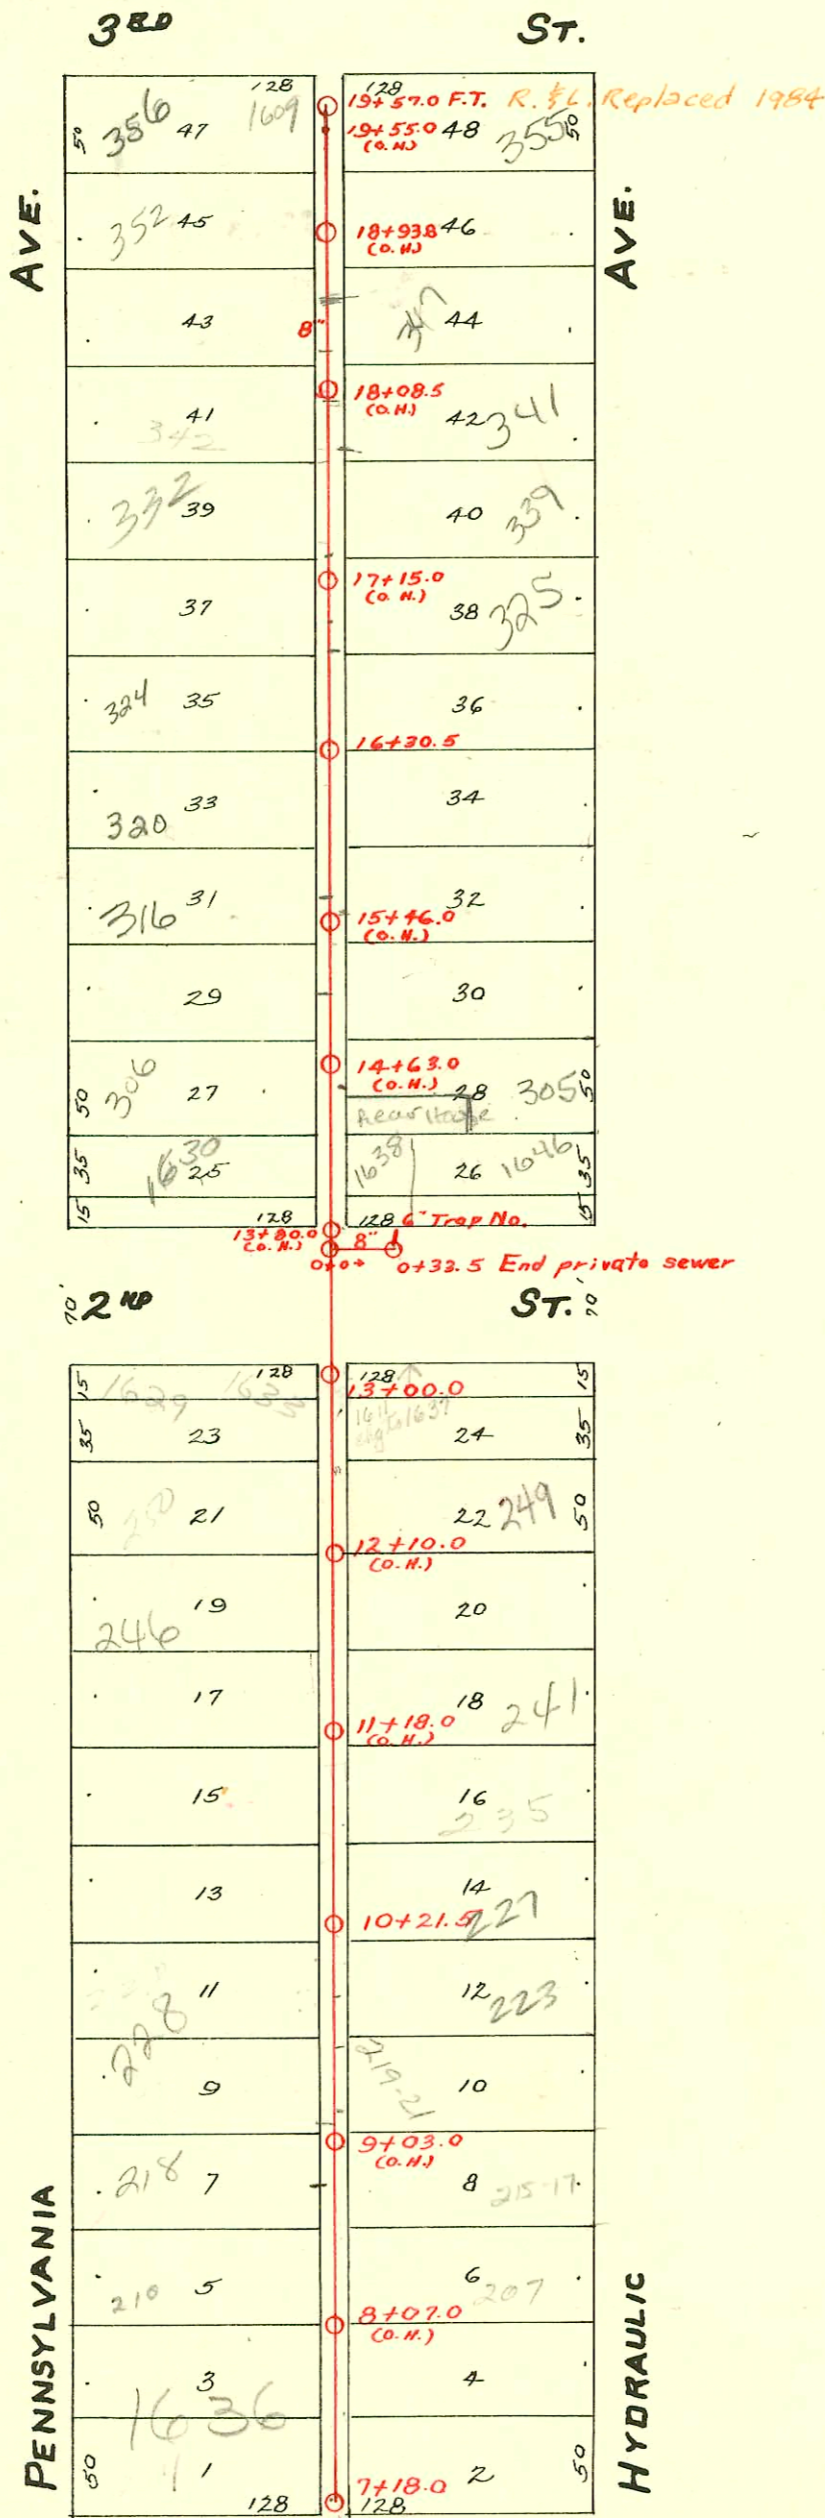 3RD ST.
128 128
19+57.0 F.T. R. & L. Replaced 1984
50 356 47 1609 19+55.0 48 355 50
(O.H.)
AVE. AVE.
352 45 18+93.8 46
(O.H.)
43 8" 347 44
18+08.5
(O.H.)
41 42 341
342
332 39 40 339
17+15.0
(O.H.)
37 38 325
324 35 36
16+30.5
33 34
320
316 31 32
15+46.0
(O.H.)
29 30
14+63.0
(O.H.)
50 306 27 28 305 50
Rear House
35 1630 25 1638 26 1646 35
15 128 128 6" Trap No. 15
13+80.0
(O.H.) 8"
0+0+ 0+33.5 End private sewer
70' 2ND ST. 70'
15 1629 1633 128 128 15
13+00.0
1611
bldg to 1637
35 23 24 35
50 250 21 22 249 50
12+10.0
(O.H.)
19 20
246
17 18 241
11+18.0
(O.H.)
15 16
235
13 14
10+21.5 227
11 12 223
228
9 219-21 10
9+03.0
(O.H.)
218 7 8 215-17
210 5 6 207
8+07.0
(O.H.)
3 4
1636
50 1 2 50
7+18.0
128 128
PENNSYLVANIA HYDRAULIC